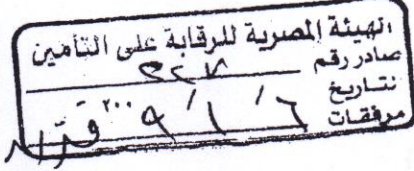 الهيئة المصرية للرقابة على التامين
صادر رقم ٣٢٧
بتاريخ ٦ / ١ / ٢٠٠٩
مرفقات